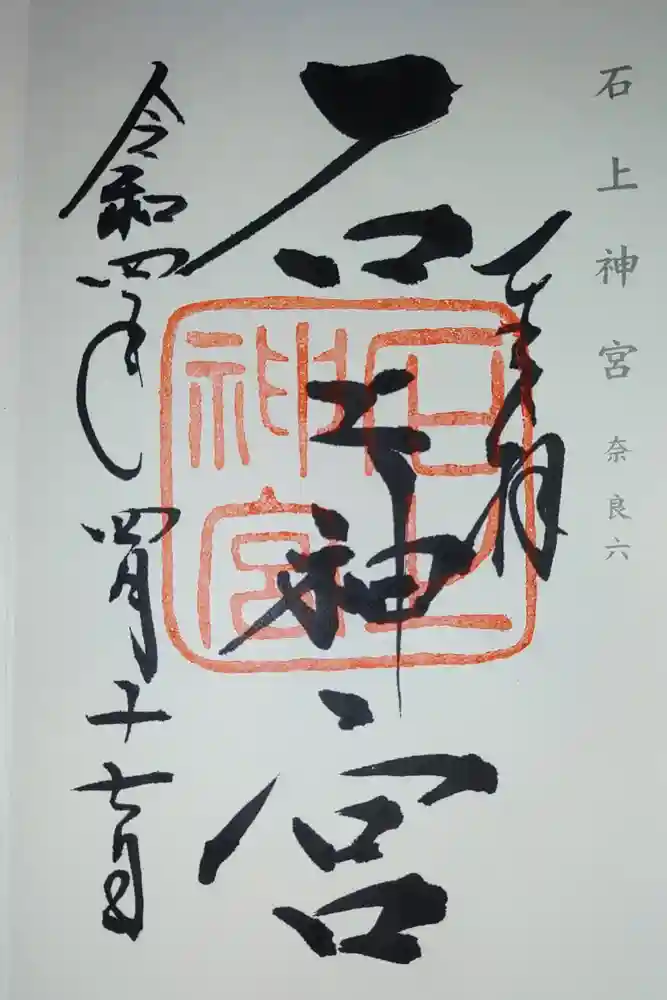 石上神宮 奈良六
奉拝
石上神宮
令和四年四月十七日
石上神宮